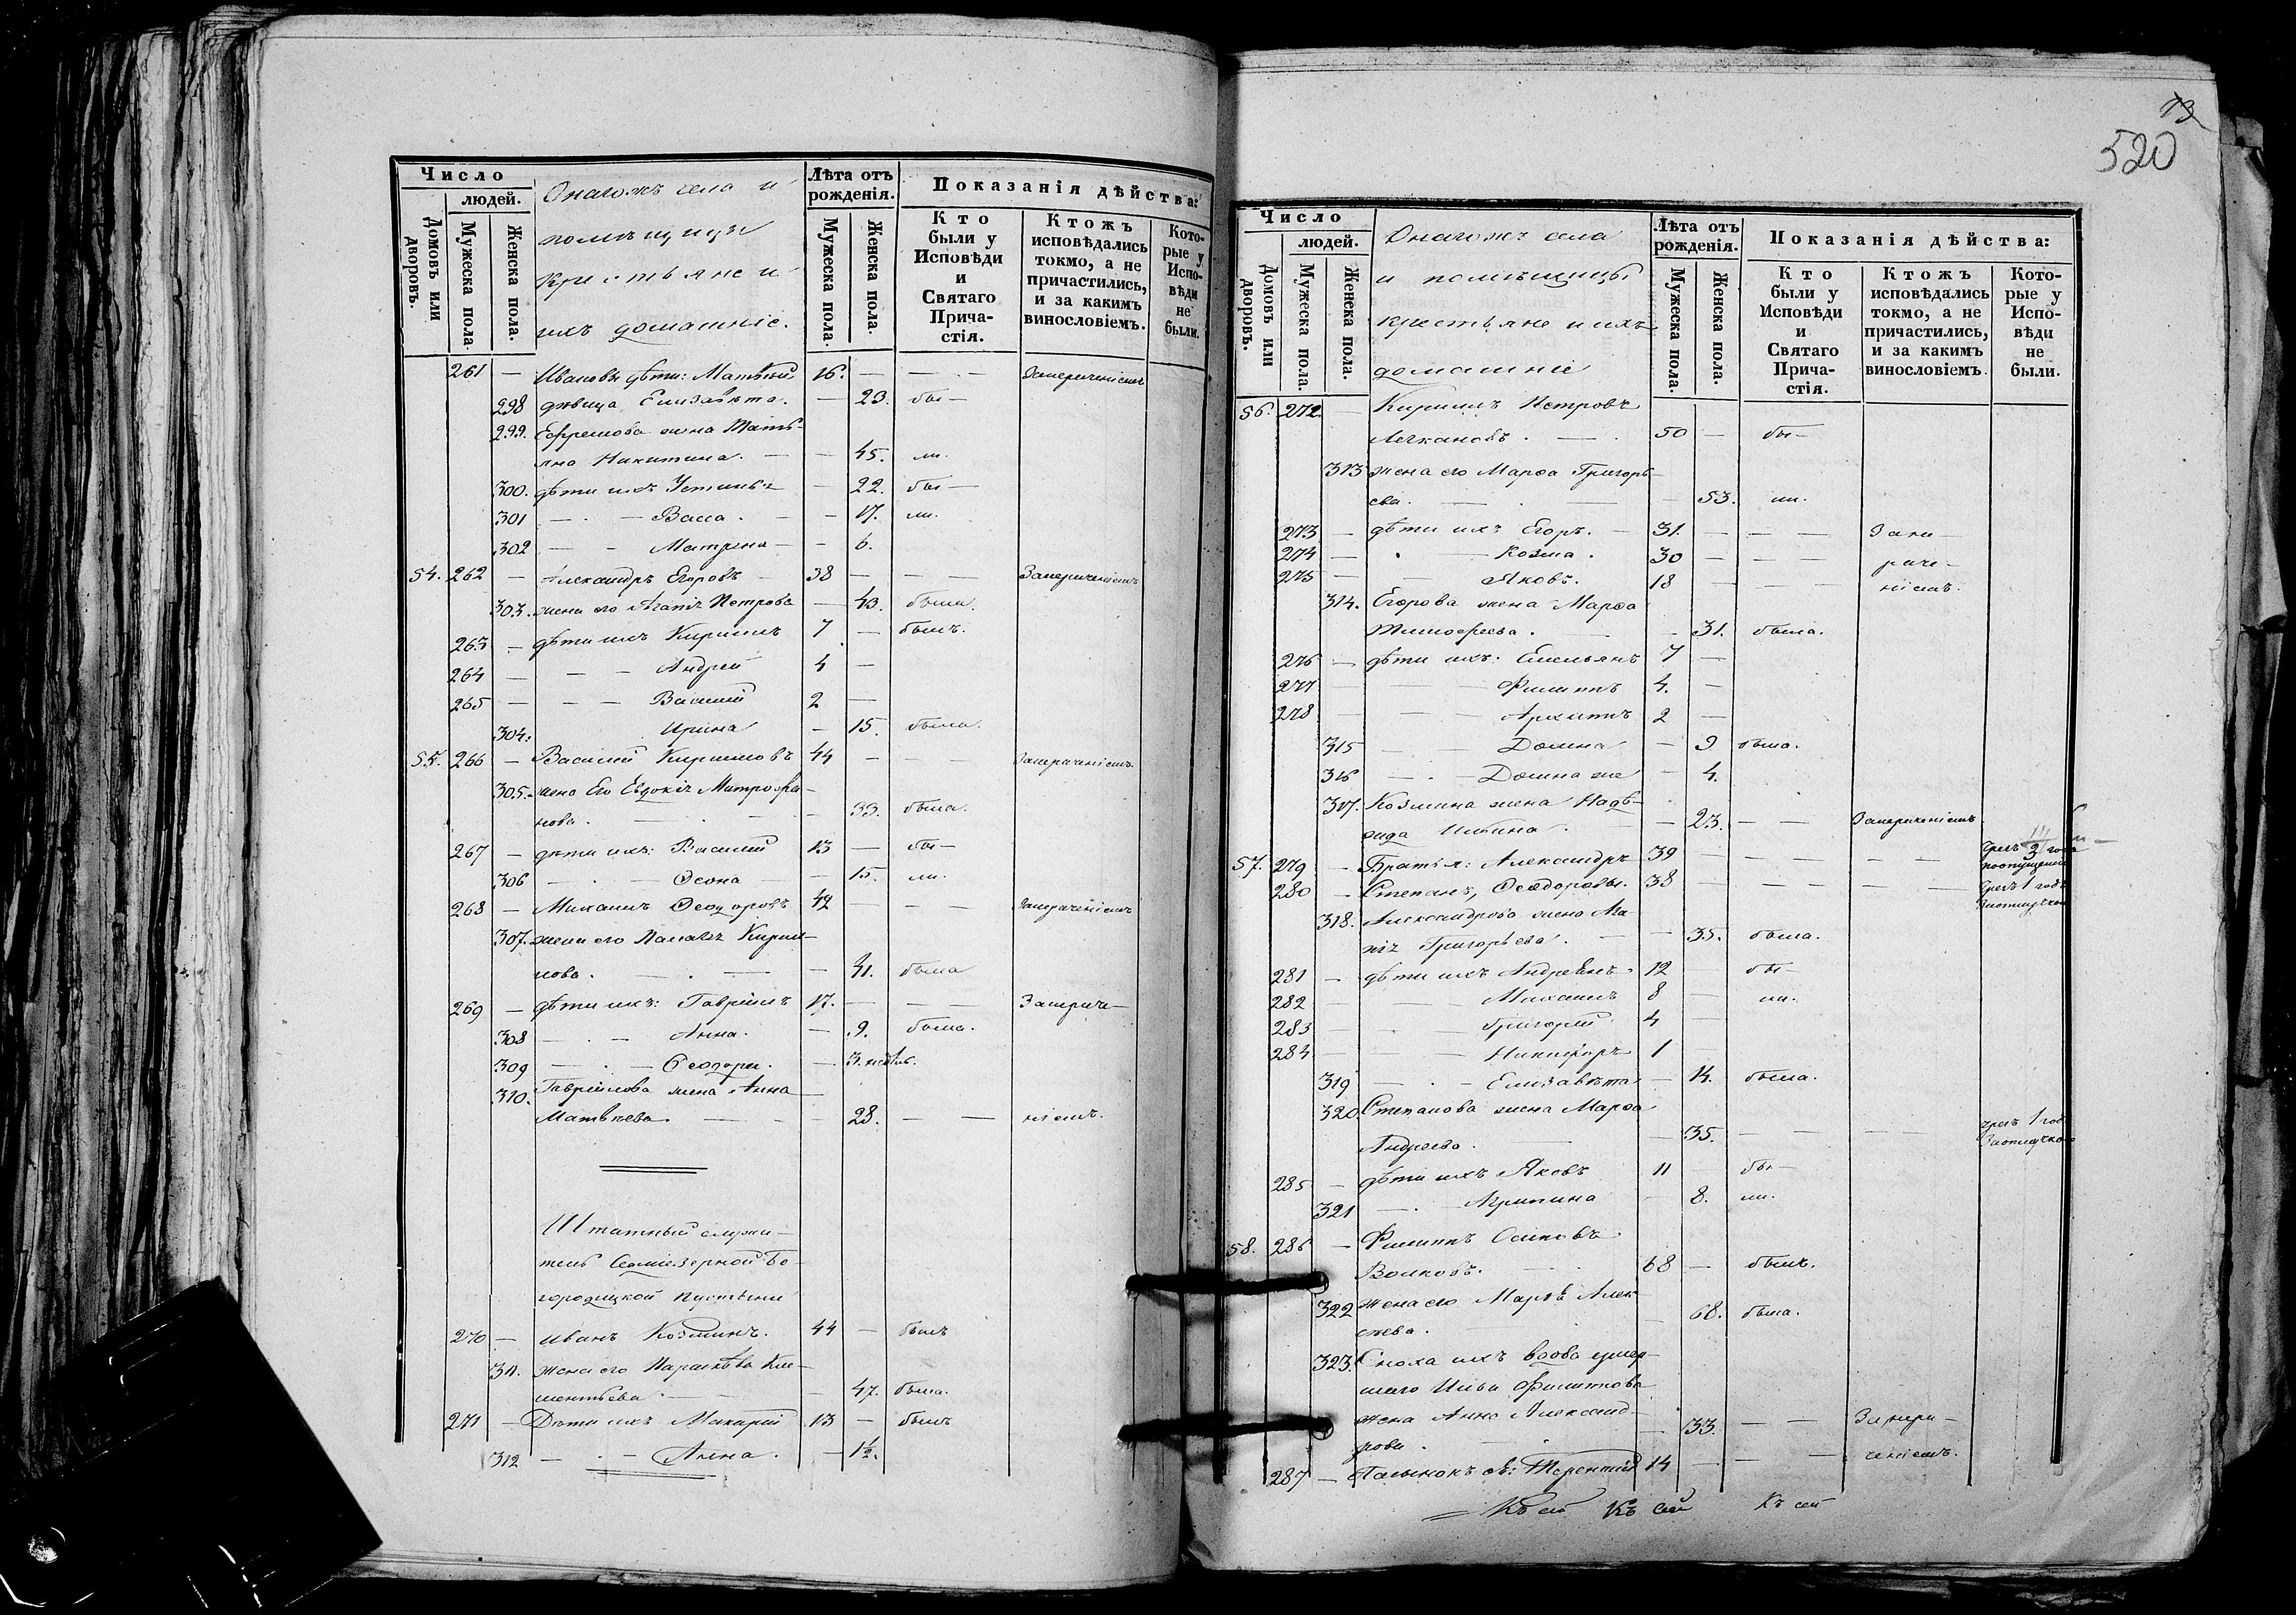 Число
людей.
Домовъ или дворовъ.
Мужеска пола.
Женска пола.
Онагожъ села и
помѣщицы
крестьяне и
ихъ домашніе.
Лѣта отъ рожденія.
Мужеска пола.
Женска пола.
Показанія дѣйства:
Кто были у Исповѣди и Святаго Причастія.
Ктожъ исповѣдались токмо, а не причастились, и за какимъ винословіемъ.
Которые у Исповѣди не были.
261 — Ивановы дѣти: Матвей 16. — — —
298 девица Елизавета. — 23. бы —
299. Ефремова жена Татья-
на Никитина. — — 45. ли.
300. дѣти ихъ Устинья — 22. бы —
301 — Васса. — 17. ли.
302 — — Матрена — — 6.
54. 262 — Александръ Егоровъ 38 — — —
303. жена его Агапія Петрова — 43. была.
263 — дѣти ихъ Кирилъ 7 — былъ.
264 — — — Андрей 4 —
265 — — — Василій 2 —
304. Ирина — 15. была.
55. 266 — Василій Кириловъ 44 — — —
305. жена его Евдокія Митрофа-
нова. — 33. была.
267 — дети ихъ: Василій 13 — бы —
306 — Ѳеона — 15. ли.
268 — Михаилъ Ѳеодоровъ 42 — — —
307. жена его Палагія Кирил-
лова. — — 41. была
269 — дѣти ихъ: Гаврилъ 17. — — — Запрече-
308 — — Анна. — 9. была.
309 — — Ѳеодора. —
310. Гаврилова жена Анна
Матвѣева. — 28. — — ніемъ.
Штатный служи-
тель Седміезерной Бо-
городицкой Пустыни
270 — Иванъ Козминъ. 44 — былъ
311. жена его Параскѣва Кли-
ментьева. — 47. была.
271 — Дети ихъ Макарій 13 — былъ
312 — — Анна. — 1½.
13
520
Число
людей.
Домовъ или дворовъ.
Мужеска пола.
Женска пола.
Онагожъ села
и помѣщицы
крестьяне и ихъ
домашніе
Лѣта отъ рожденія.
Мужеска пола.
Женска пола.
Показанія дѣйства:
Кто были у Исповѣди и Святаго Причастія.
Ктожъ исповѣдались токмо, а не причастились, и за какимъ винословіемъ.
Которые у Исповѣди не были.
56. 272 — Кирилъ Петровъ
50 — бы —
313 жена его Марѳа Григорь-
ева. — — 53. ли.
273 — дѣти ихъ Егоръ. — 31. — — —
274 — — Козма. 30 — — —
275 — Яковъ. 18 — — ніемъ.
314. Егорова жена Марѳа
Тимофеева. — 31. была.
276 — дѣти ихъ: Емельянъ 7 —
277 — Филиппъ 4. —
278 — Архипъ 2 —
315 — — Домна — 9 была.
316 — — Домна же — 4.
317. Козмина жена Надѣ-
жда — 23. — —
57. 279 — Братья: Александръ 39 — — —
280 — Степанъ, Ѳеодоровы. 38 — — — чрезъ 1 годъ
318. Александрова жена Ага-
пія Григорьева. — — 35. была.
281 — дѣти ихъ Андреянъ 12 бы —
282 — Михаилъ 8 — ли.
283 — Григорій 4 —
284 — Никифоръ 1 —
319 — — Елизавета — 14. была.
320 Степанова жена Марѳа
Андреева. — 35. — — чрезъ 1 годъ
285 — дѣти ихъ Яковъ 11 — бы —
321 — Агрипина — 8. ли.
58. 286 — Филиппъ Осиповъ
Волковъ. — 68 — былъ.
322 жена его Марѳа Алек-
сеева. — 68. была.
323. Сноха ихъ вдова умер-
шаго Ильи Филиппова
жена Анна Александ-
рова. — 33. — —
287 — Терентій 14 — — ченіемъ.
Къ сей Къ сей Къ сей